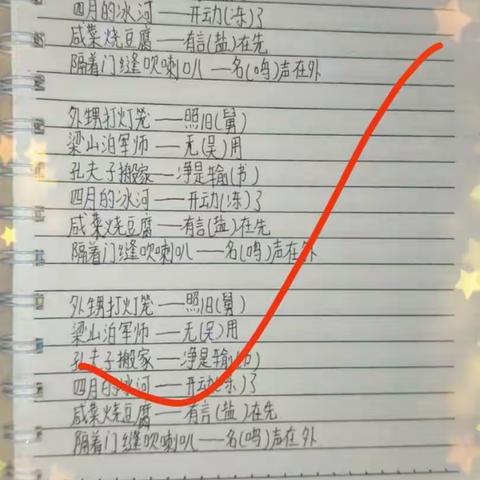 四月的冰河——开动(冻)了
咸菜烧豆腐——有言(盐)在先
隔着门缝吹喇叭——名(鸣)声在外
外甥打灯笼——照旧(舅)
梁山泊军师——无(吴)用
孔夫子搬家——净是输(书)
四月的冰河——开动(冻)了
咸菜烧豆腐——有言(盐)在先
隔着门缝吹喇叭——名(鸣)声在外
外甥打灯笼——照旧(舅)
梁山泊军师——无(吴)用
孔夫子搬家——净是输(书)
四月的冰河——开动(冻)了
咸菜烧豆腐——有言(盐)在先
隔着门缝吹喇叭——名(鸣)声在外